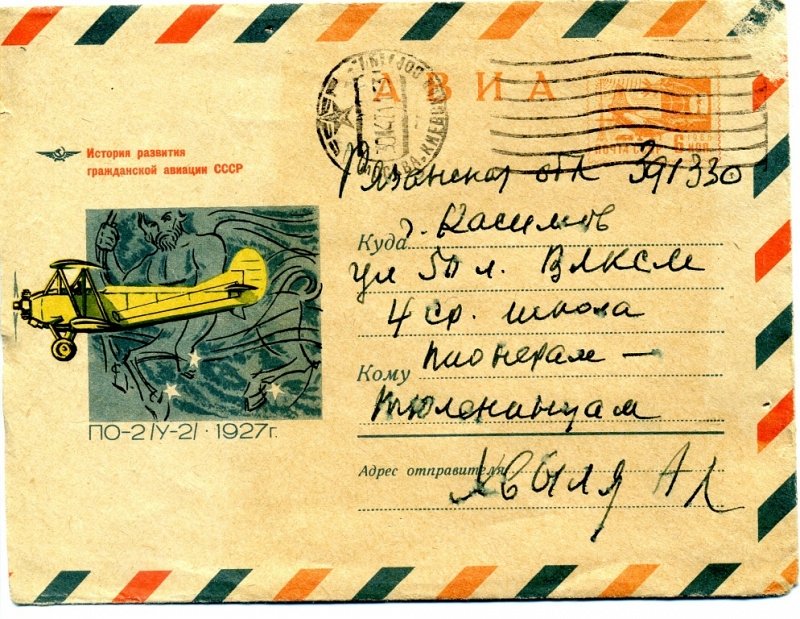 АВИА
6 КОП.
ПОЧТА
История развития
гражданской авиации СССР
Рязанская обл 391330
Куда г. Касимов
ул 50 л. ВЛКСМ
4 ср. школа
Кому пионерам —
тюленинцам
Адрес отправителя
Хвыля А Л
ПО-2/У-2/·1927г.